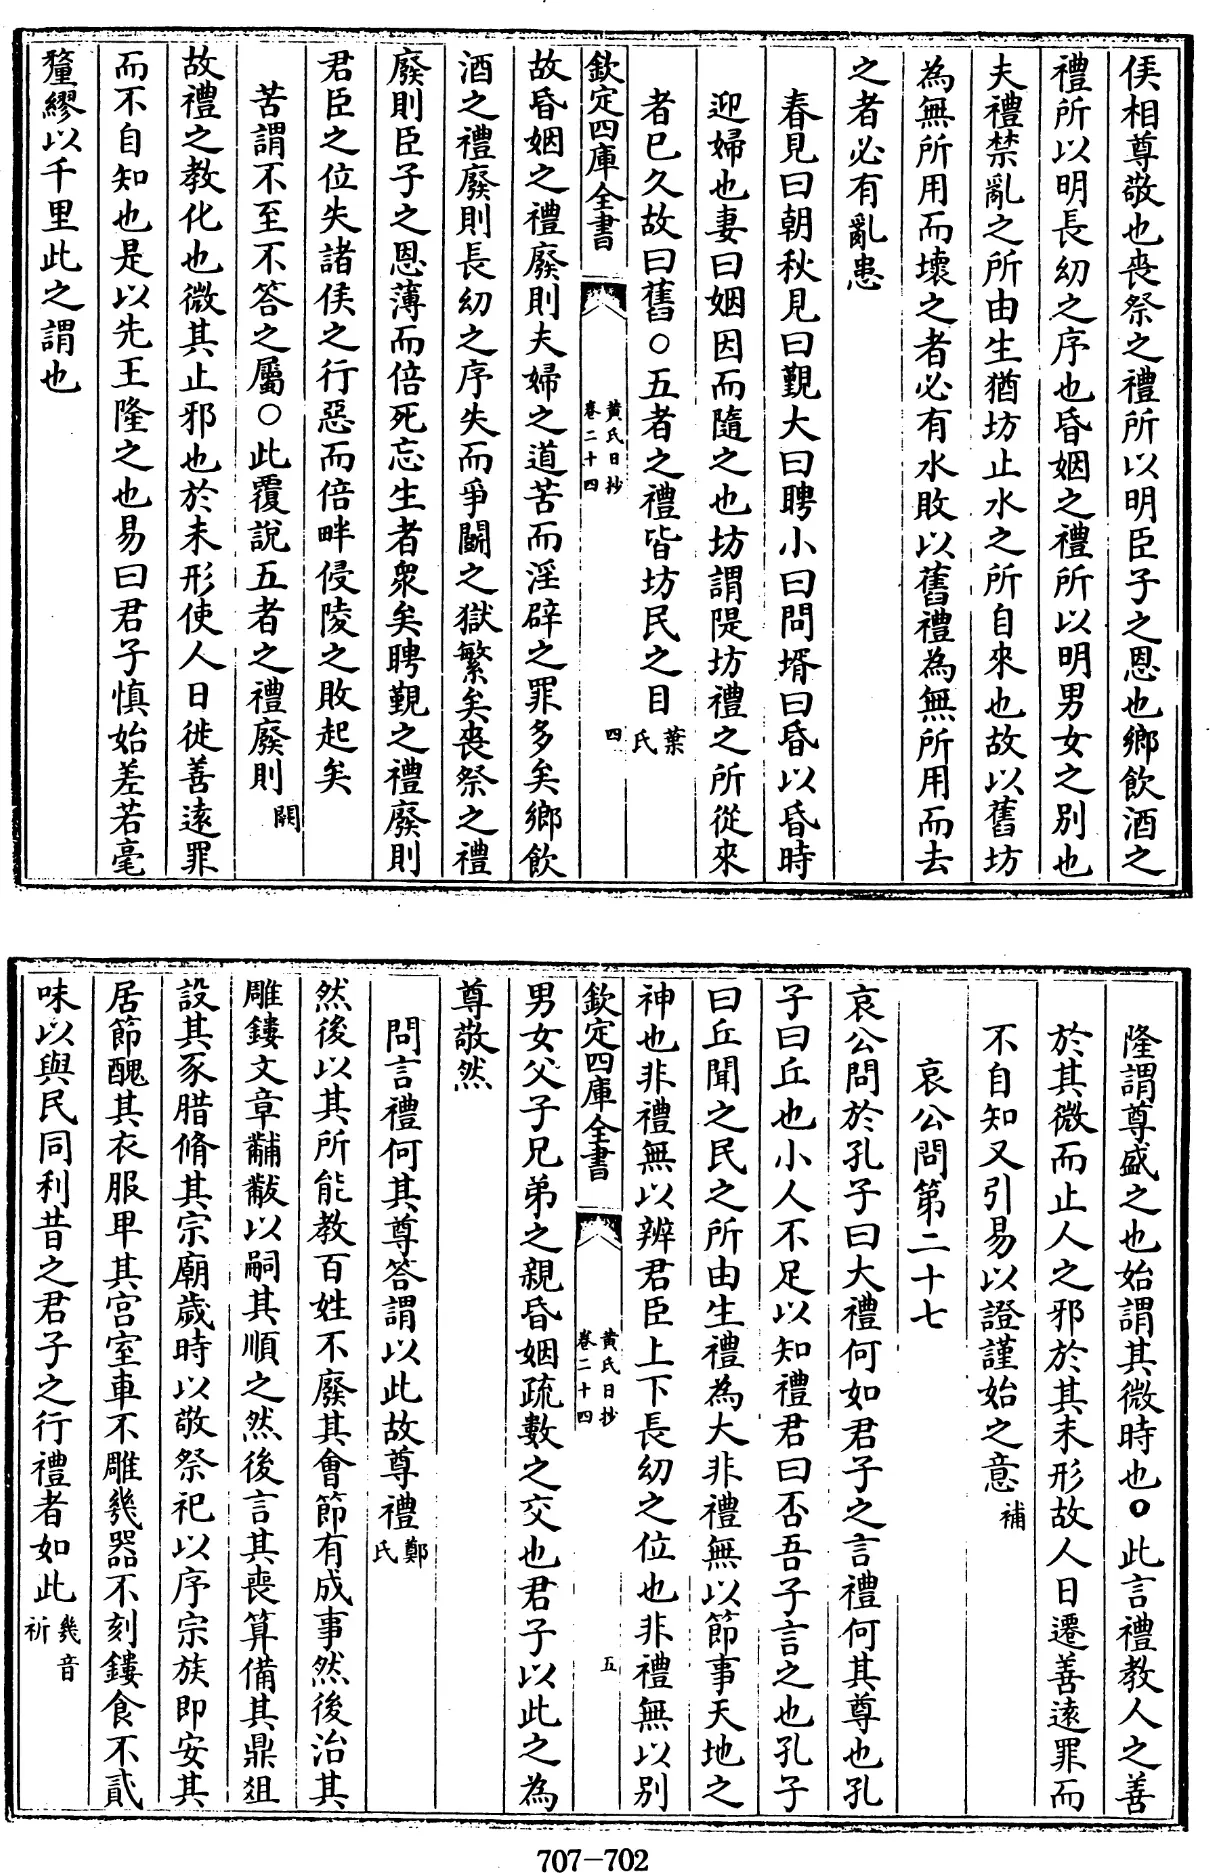 侯相尊敬也喪祭之禮所以明臣子之恩也鄉飲酒之
禮所以明長幼之序也昏姻之禮所以明男女之別也
夫禮禁亂之所由生猶坊止水之所自來也故以舊坊
為無所用而壞之者必有水敗以舊禮為無所用而去
之者必有亂患
春見曰朝秋見曰覲大曰聘小曰問壻曰昏以昏時
迎婦也妻曰姻因而隨之也坊謂隄坊禮之所從來
者已久故曰舊○五者之禮皆坊民之目葉氏
欽定四庫全書
黄氏日抄
卷二十四
四
故昏姻之禮廢則夫婦之道苦而淫辟之罪多矣鄉飲
酒之禮廢則長幼之序失而爭鬭之獄繁矣喪祭之禮
廢則臣子之恩薄而倍死忘生者衆矣聘覲之禮廢則
君臣之位失諸侯之行惡而倍畔侵陵之敗起矣
苦謂不至不答之屬○此覆說五者之禮廢則闕
故禮之教化也微其止邪也於未形使人日徙善遠罪
而不自知也是以先王隆之也易曰君子慎始差若毫
釐繆以千里此之謂也
隆謂尊盛之也始謂其微時也○此言禮教人之善
於其微而止人之邪於其未形故人日遷善遠罪而
不自知又引易以證謹始之意補
哀公問第二十七
哀公問於孔子曰大禮何如君子之言禮何其尊也孔
子曰丘也小人不足以知禮君曰否吾子言之也孔子
曰丘聞之民之所由生禮為大非禮無以節事天地之
神也非禮無以辨君臣上下長幼之位也非禮無以別
欽定四庫全書
黄氏日抄
卷二十四
五
男女父子兄弟之親昏姻疏數之交也君子以此之為
尊敬然
問言禮何其尊答謂以此故尊禮鄭氏
然後以其所能教百姓不廢其會節有成事然後治其
雕鏤文章黼黻以嗣其順之然後言其喪算備其鼎俎
設其豕腊脩其宗廟歲時以敬祭祀以序宗族即安其
居節醜其衣服卑其宫室車不雕幾器不刻鏤食不貳
味以與民同利昔之君子之行禮者如此幾音祈
707-702